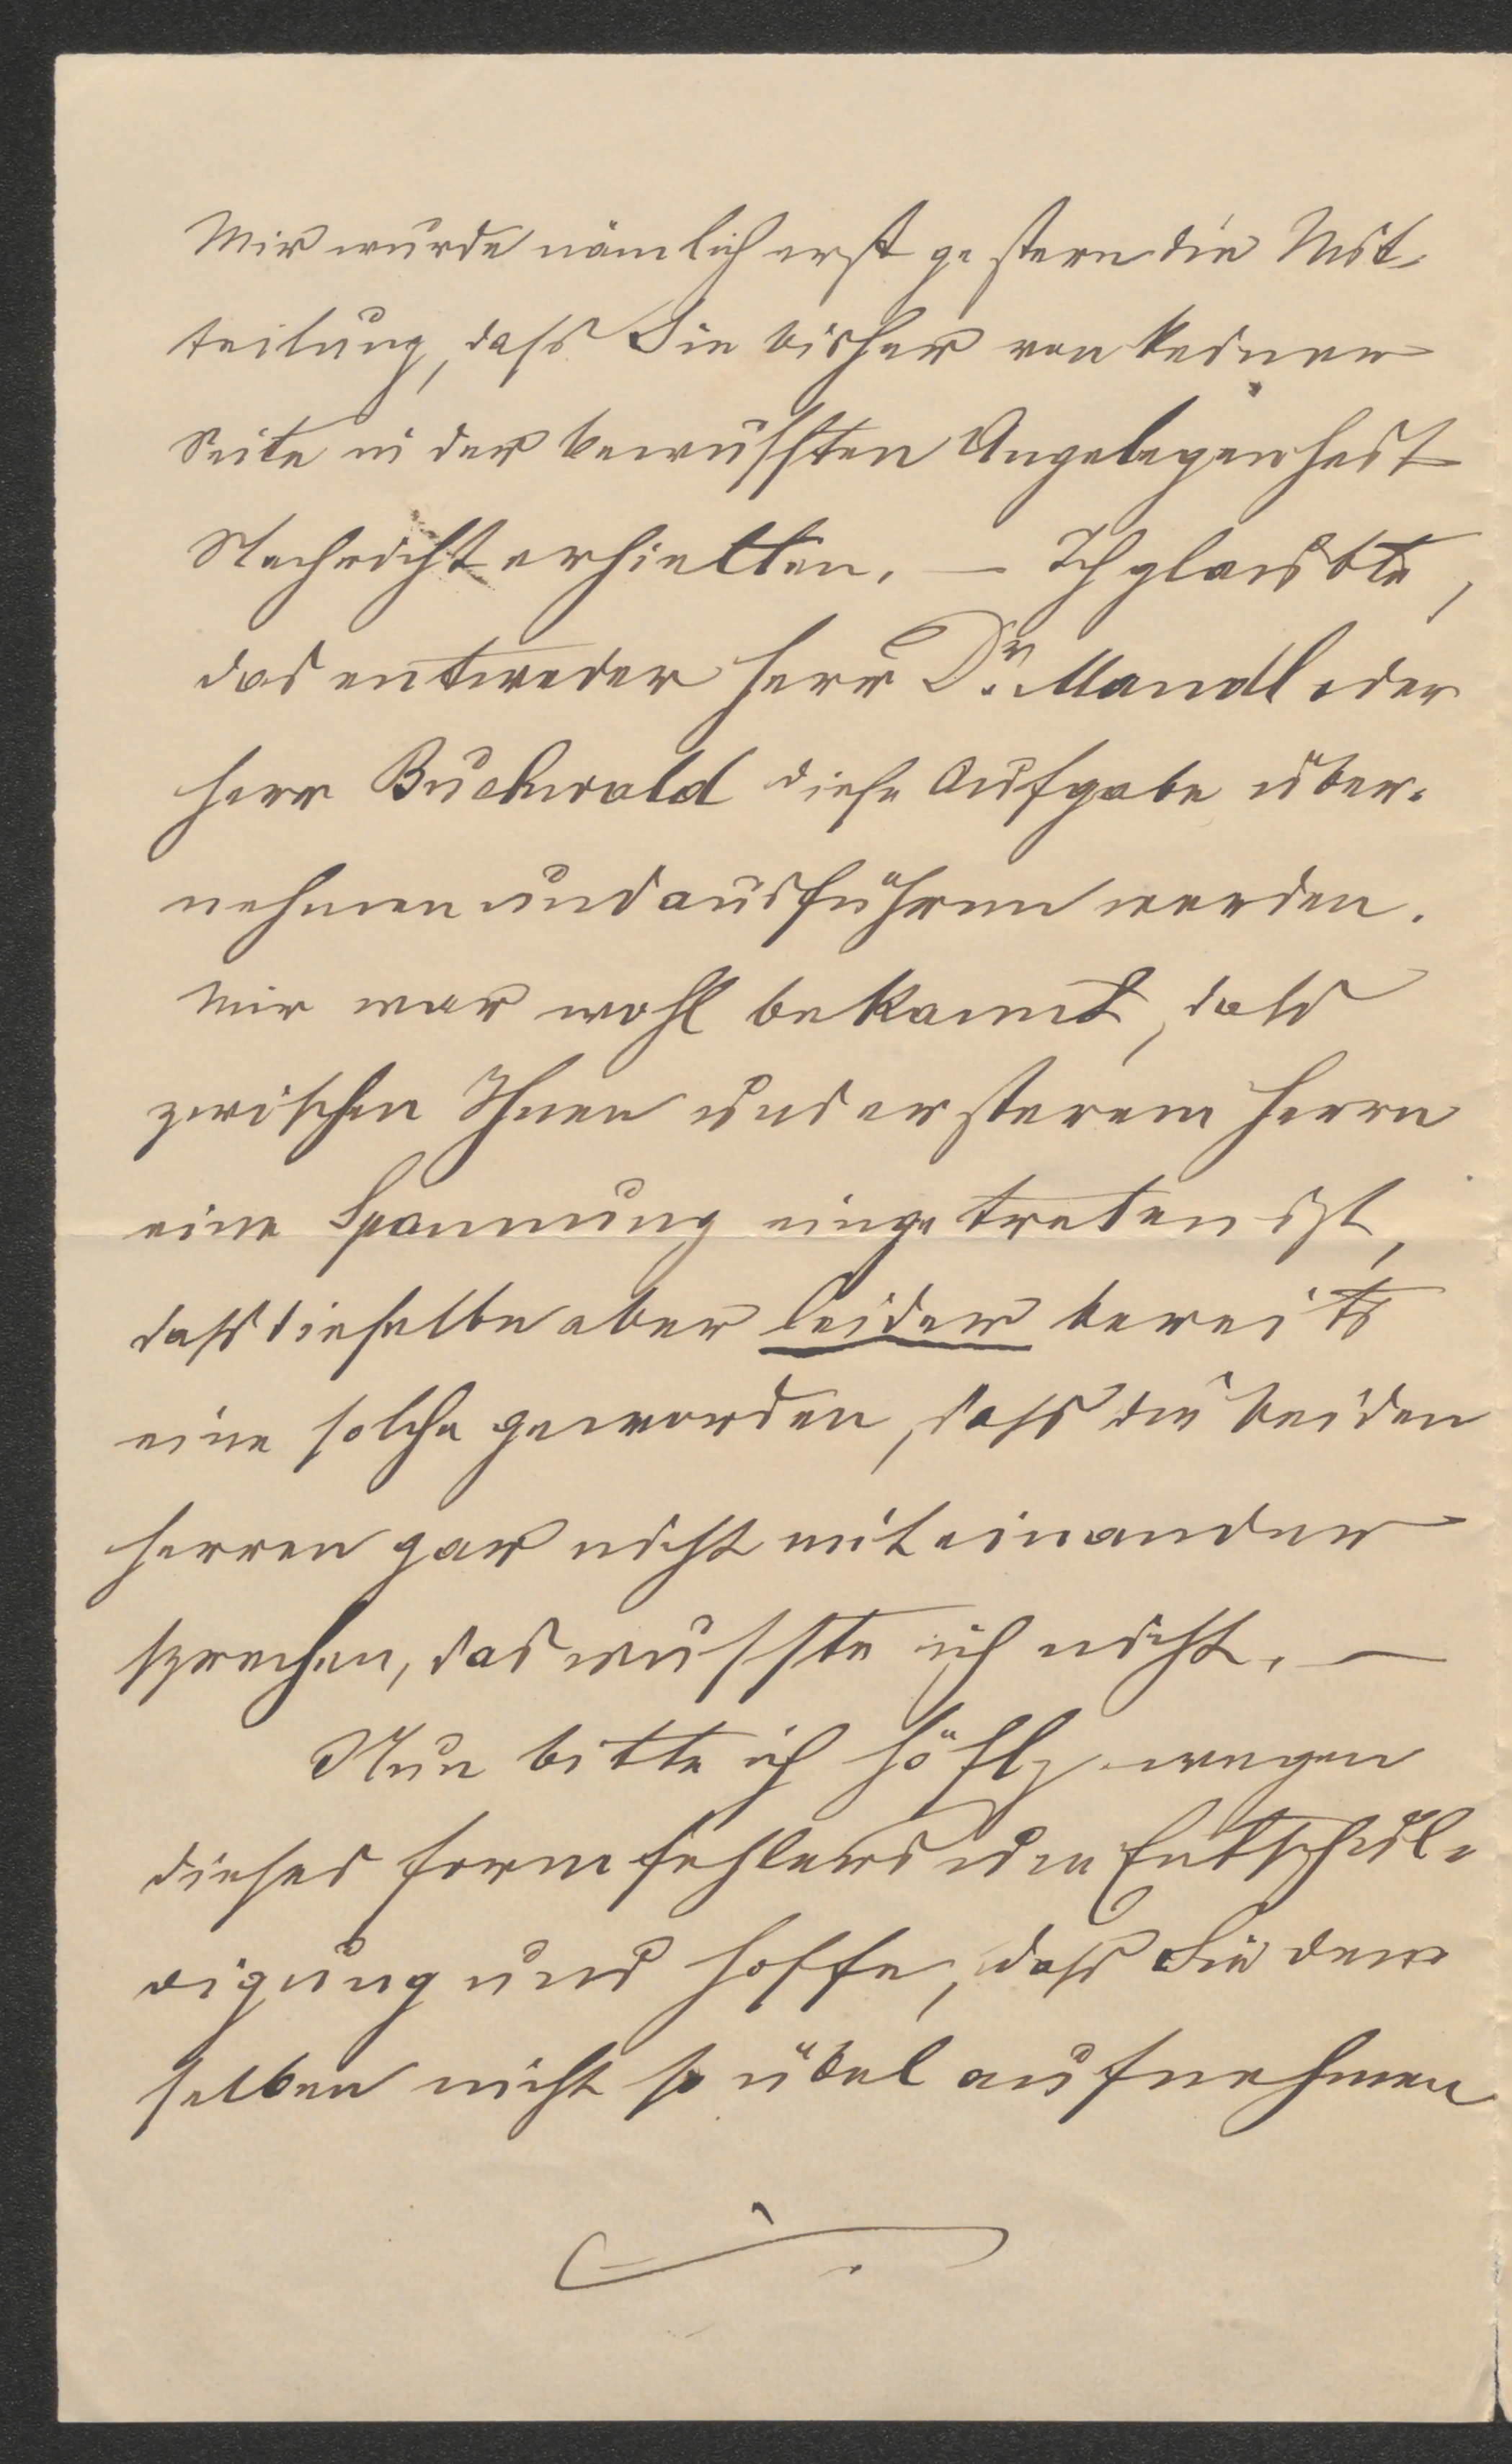 Mir wurde nämlich erst gestern die Mit-
teilung, dass Sie bisher von keiner
Seite in der bewussten Angelegenheit
Nachricht erhielten. — Ich glaubte,
das entweder Herr Dr. Mandl oder
Herr Buchwald diese Aufgabe über-
nehmen und ausführen werden.
Mir war wohl bekannt, dass
zwischen Ihnen und ersterem Herrn
eine Spannung eingetreten ist,
dass dieselbe aber leider bereits
eine solche geworden, dass die beiden
Herren gar nicht miteinander
sprechen, das wusste ich nicht. —
Nun bitte ich höfl. wegen
dieses Formfehlers um Entschul-
digung und hoffe, dass Sie den-
selben nicht so übel aufnehmen